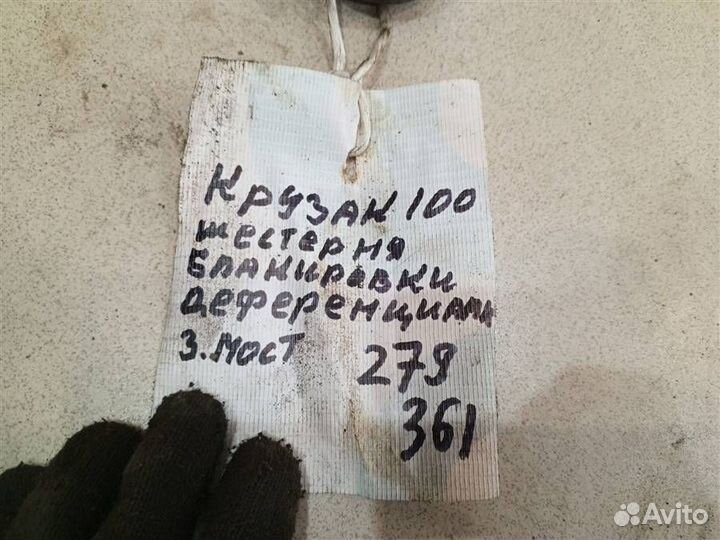 Крузак 100
шестерня
блакировки
деференциала
З. мост 279
361
Avito